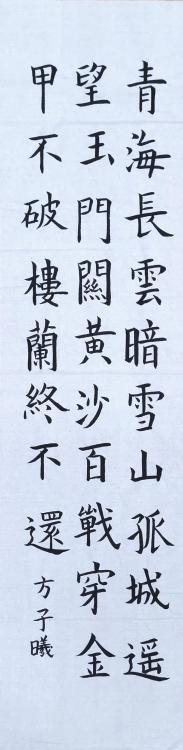 青海長雲暗雪山孤城遥
望玉門關黄沙百戰穿金
甲不破樓蘭終不還
方子曦